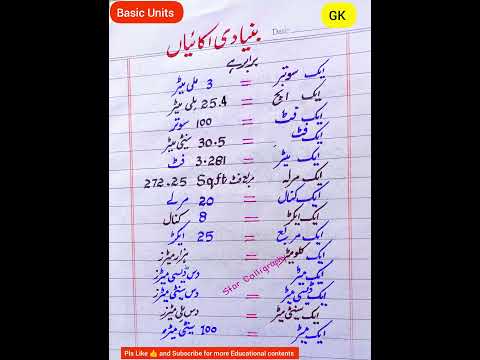 Basic Units
GK
Date:
بنیادی اکائیاں
برابر ہے
ایک سوتر = 3 ملی میٹر
ایک انچ = 25.4 ملی میٹر
ایک فٹ = 100 سوتر
ایک فٹ = 30.5 سینٹی میٹر
ایک میٹر = 3.281 فٹ
ایک مرلہ = 272.25 Sqft مربع فٹ
ایک کنال = 20 مرلے
ایک ایکڑ = 8 کنال
ایک مربع = 25 ایکڑ
ایک کلومیٹر = ہزار میٹرز
ایک میٹر = دس ڈیسی میٹرز
ایک ڈیسی میٹر = دس سینٹی میٹرز
ایک سینٹی میٹر = دس ملی میٹرز
ایک میٹر = 100 سینٹی میٹرز
Star Calligraphy
Pls Like 👍 and Subscribe for more Educational contents